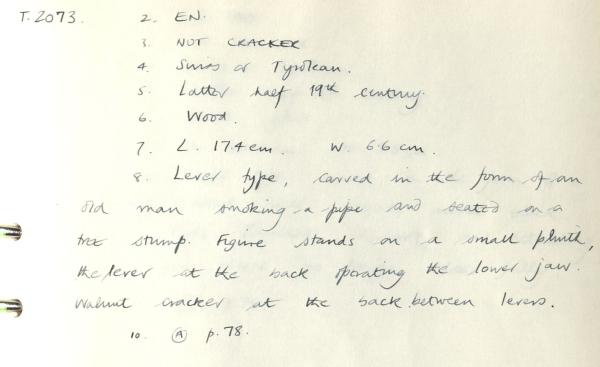 T.2073. 2. EN.
3. NUT CRACKER
4. Swiss or Tyrolean.
5. Latter half 19th century.
6. Wood.
7. L. 17.4cm. W. 6.6 cm.
8. Lever type, carved in the form of an
old man smoking a pipe and seated on a
tree stump. Figure stands on a small plinth,
the lever at the back operating the lower jaw.
Walnut cracker at the back between levers.
10. Ⓐ p.78.